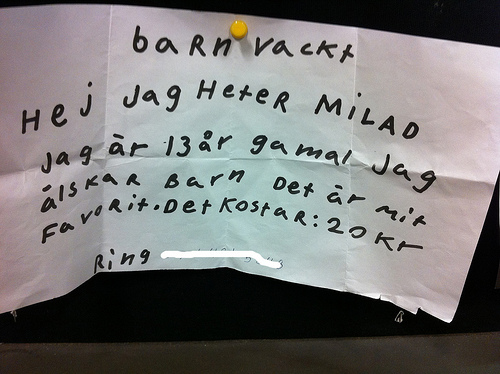 barnvackt
Hej Jag HeteR MiLAD
Jag är 13 år gamal Jag
älskar Barn Det är mit
Favorit. Det Kostar: 20 Kr
Ring